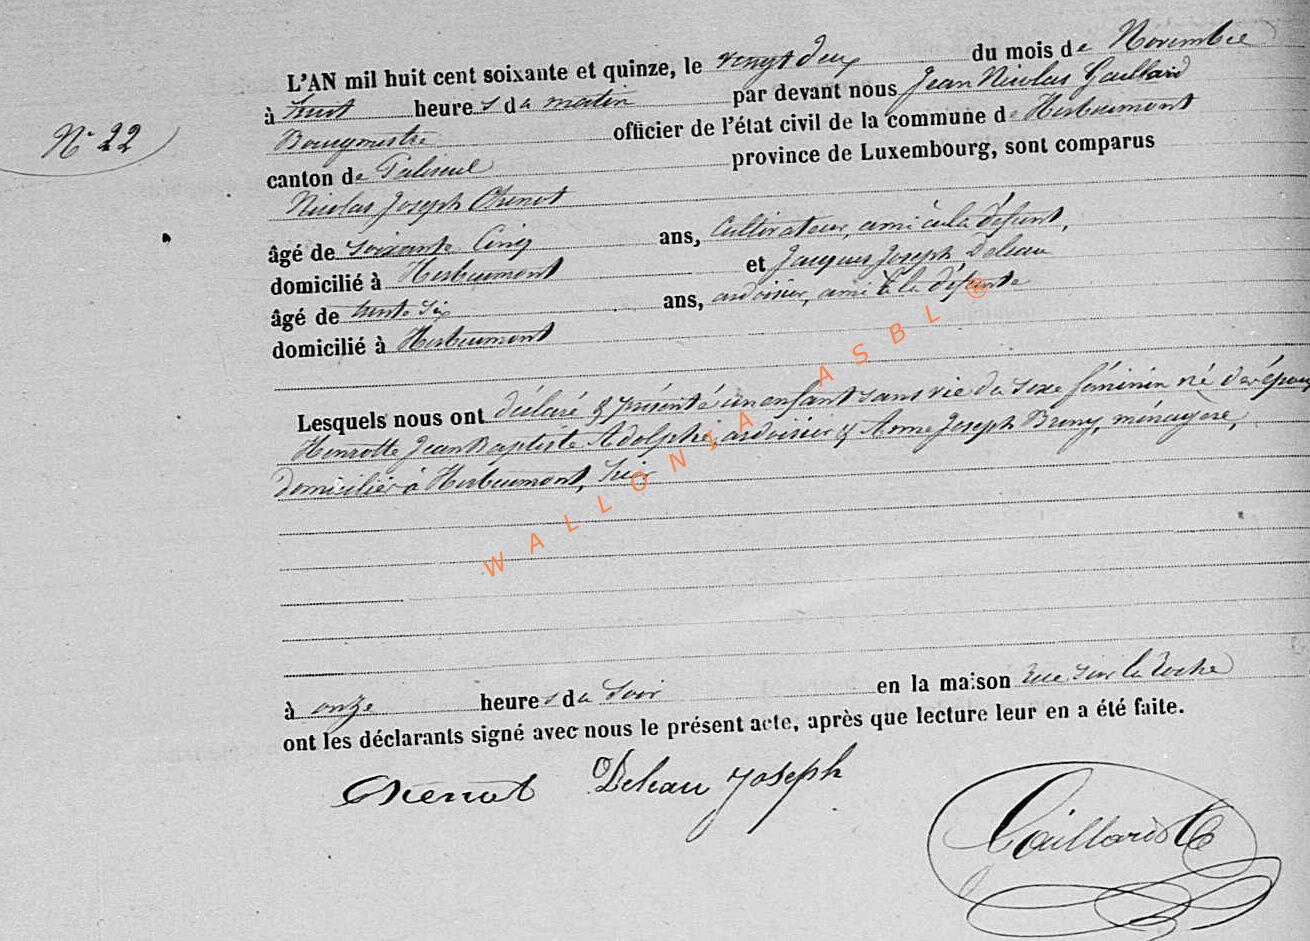 L'AN mil huit cent soixante et quinze, le vingt deux du mois de Novembre
N° 22
à huit heures du matin par devant nous Jean Nicolas Gaillard
Bourgmestre officier de l'état civil de la commune de Herbeumont
canton de Paliseul province de Luxembourg, sont comparus
Nicolas Joseph Chenot
âgé de soixante Cinq ans, Cultivateur, ami à la défunt,
domicilié à Herbeumont et Jacques Joseph Deleau
âgé de trente six ans, ardoisier, ami à la défunte
domicilié à Herbeumont
Lesquels nous ont déclaré & présenté un enfant sans vie du sexe féminin né des époux
Henrotte Jean Baptiste Adolphe, ardoisier & Anne Joseph Bruny, ménagère,
domiciliés à Herbeumont, hier
à onze heures du soir en la maison rue sur la Roche
ont les déclarants signé avec nous le présent acte, après que lecture leur en a été faite.
Chenot Deleau Joseph
Gaillard
WALLONIA ASBL ®